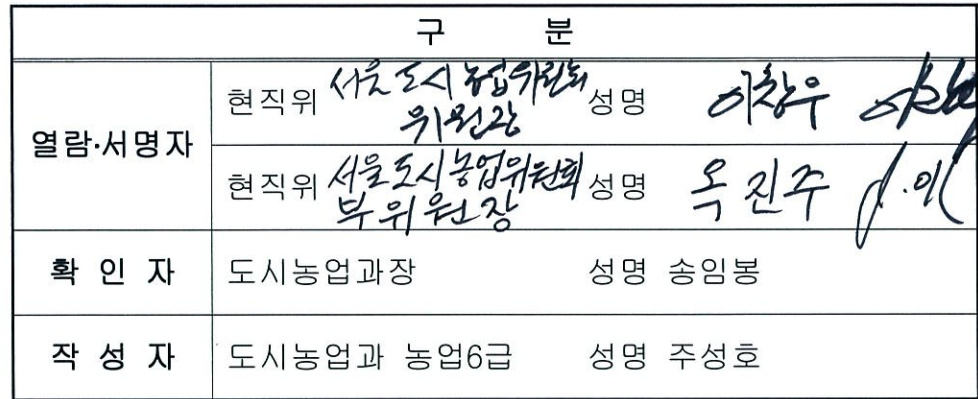 구 분
열람·서명자
현직위 서울도시농업위원회 위원장 성명 이창우
현직위 서울도시농업위원회 부위원장 성명 옥진주
확 인 자 도시농업과장 성명 송임봉
작 성 자 도시농업과 농업6급 성명 주성호